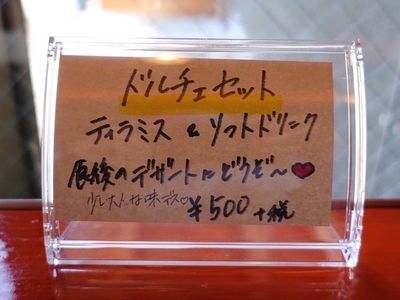 ドルチェセット
ティラミス & ソフトドリンク
食後のデザートにどうぞ〜♥
少し大人な味デス♡
¥500 +税